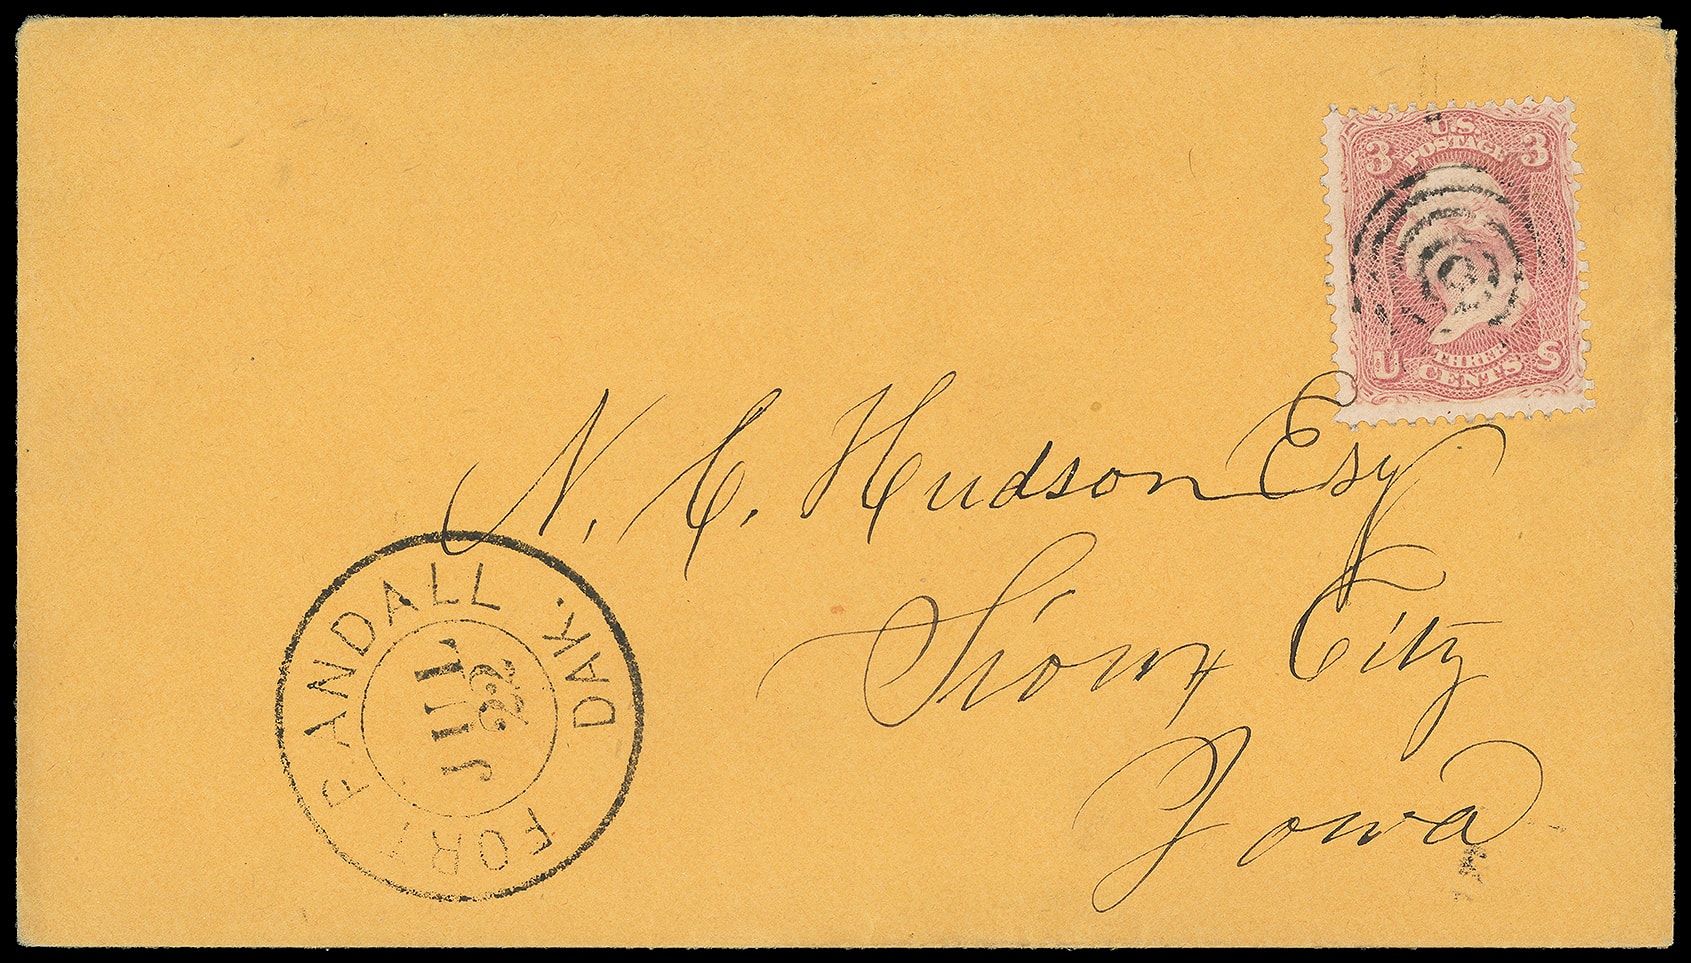 U.S.
POSTAGE
3 3
U S
THREE
CENTS
N. C. Hudson Esq
Sioux City
Iowa
FORT RANDALL DAK.
JUL
22